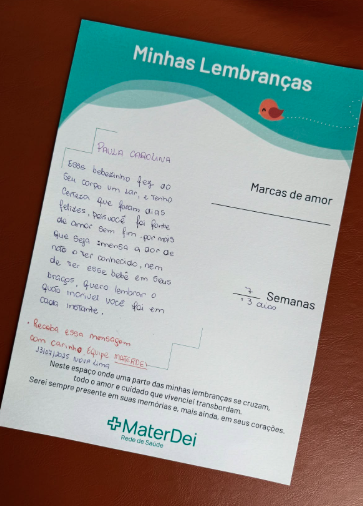 Minhas Lembranças
PAULA CAROLINA
Esse bebezinho fez do
seu corpo um lar, e tenho
certeza que foram dias
felizes, pois você foi fonte
de amor sem fim. por mais
que seja imensa a dor de
não o ter conhecido, nem
de ter esse bebê em seus
braços, quero lembrar o
quão incrível você foi em
cada instante.
• Receba essa mensagem
com carinho, Equipe MATERDEI
NOVA LIMA
Marcas de amor
7 Semanas
+ 3 dias
Neste espaço onde uma parte das minhas lembranças se cruzam,
todo o amor e cuidado que vivenciei transbordam.
Serei sempre presente em suas memórias e, mais ainda, em seus corações.
MaterDei
Rede de Saúde